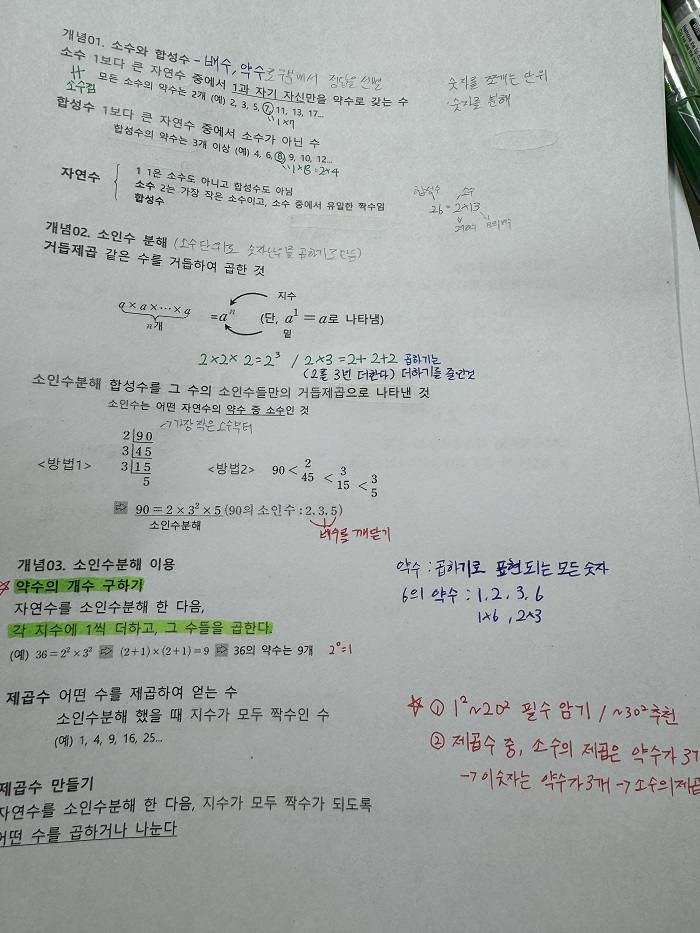 개념01. 소수와 합성수 - 배수, 약수로 구분해서 정답을 선별
소수 1보다 큰 자연수 중에서 1과 자기 자신만을 약수로 갖는 수
소수점
모든 소수의 약수는 2개 (예) 2, 3, 5, 7, 11, 13, 17...
1×7
숫자를 쪼개는 단위
숫자를 분해
합성수 1보다 큰 자연수 중에서 소수가 아닌 수
합성수의 약수는 3개 이상 (예) 4, 6, 8, 9, 10, 12...
1×8=2×4
자연수
1 1은 소수도 아니고 합성수도 아님
소수 2는 가장 작은 소수이고, 소수 중에서 유일한 짝수임
합성수
합성수 소수
26=2×13
개념02. 소인수 분해 (소수단위로 곱하기로 만듦)
거듭제곱 같은 수를 거듭하여 곱한 것
a×a×⋯×a =aⁿ (단, a¹=a로 나타냄)
n개
지수
밑
2×2×2=2³ / 2×3=2+2+2 곱하기는
(2를 3번 더한다) 더하기를 줄인것
소인수분해 합성수를 그 수의 소인수들만의 거듭제곱으로 나타낸 것
소인수는 어떤 자연수의 약수 중 소수인 것
→가장 작은 소수부터
<방법1>
2 90
3 45
3 15
5
<방법2> 90 < 2
45 < 3
15 < 3
5
⇨ 90=2×3²×5 (90의 소인수 : 2, 3, 5)
소인수분해
배수를 깨닫기
개념03. 소인수분해 이용
약수의 개수 구하기
자연수를 소인수분해 한 다음,
각 지수에 1씩 더하고, 그 수들을 곱한다.
(예) 36=2²×3² ⇨ (2+1)×(2+1)=9 ⇨ 36의 약수는 9개 2⁰=1
약수 : 곱하기로 표현되는 모든 숫자
6의 약수 : 1, 2, 3, 6
1×6, 2×3
제곱수 어떤 수를 제곱하여 얻는 수
소인수분해 했을 때 지수가 모두 짝수인 수
(예) 1, 4, 9, 16, 25...
☆ ① 1²~20² 필수 암기 / ~30² 추천
② 제곱수 중, 소수의 제곱은 약수가 3개
→ 이 숫자는 약수가 3개 → 소수의 제곱
제곱수 만들기
자연수를 소인수분해 한 다음, 지수가 모두 짝수가 되도록
어떤 수를 곱하거나 나눈다